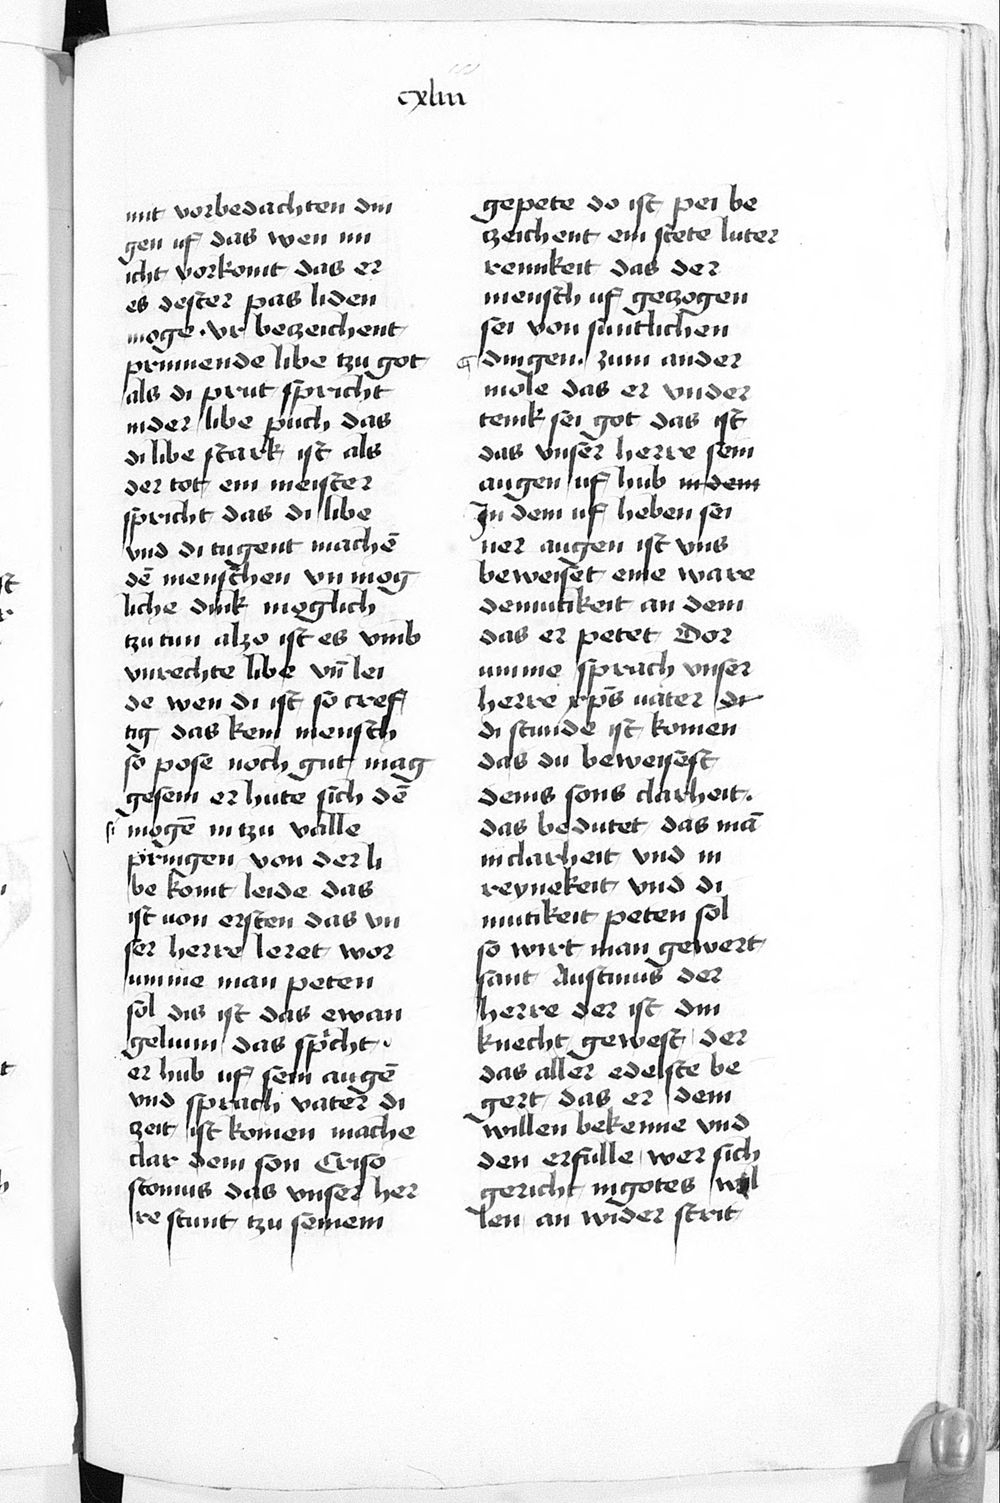 cxliii
mit vorbedachten din
gen uf das wen im
icht vorkomt das er
es dester pas liden
moge · vr beczeichent
prinnende libe tzu got
als di prut spricht
inder libe puch das
di libe stark ist als
der tot ein meister
spricht das di libe
vnd di tugent machē
dē menschen vn mog
liche dink moglich
tzu tun alzo ist es vmb
vnrechte libe vn̄ lei
de wen di ist so cref
tig das kein mensch
so pose noch gut mag
gesein er hute sich dē
mogē in tzu valle
pringen von der li
be komt leide das
ist von ersten das vn
ser herre leret wor
umme man peten
sol dis ist das ewan
gelium das spͥcht ·
er hub uf sein augē
vnd sprach vater di
zeit ist komen mache
clar dein son Criso
stomus das vnser her
re stunt tzu seinem
gepete do ist pei be
czeichent ein stete luter
reinikeit das der
mensch uf geczogen
sei von suntlichen
dingen · zum ander
mole das er vnder
tenik sei got das ist
das vnser herre sein
augen uf hub in dem
In dem uf heben sei
ner augen ist vns
beweiset eine ware
demutikeit an dem
das er petet Dor
umme sprach vnser
herre xp̄s vater di
di stunde ist komen
das du beweisest
deins sons clarheit ·
das bedutet das mā
in clarheit vnd in
reynekeit vnd di
mutikeit peten sol
so wirt man gewert
sant Austinus der
herre der ist din
knecht gewest der
das aller edelste be
gert das er dem
willen bekenne vnd
den erfulle wer sich
gericht in gotes wil
len an wider strit